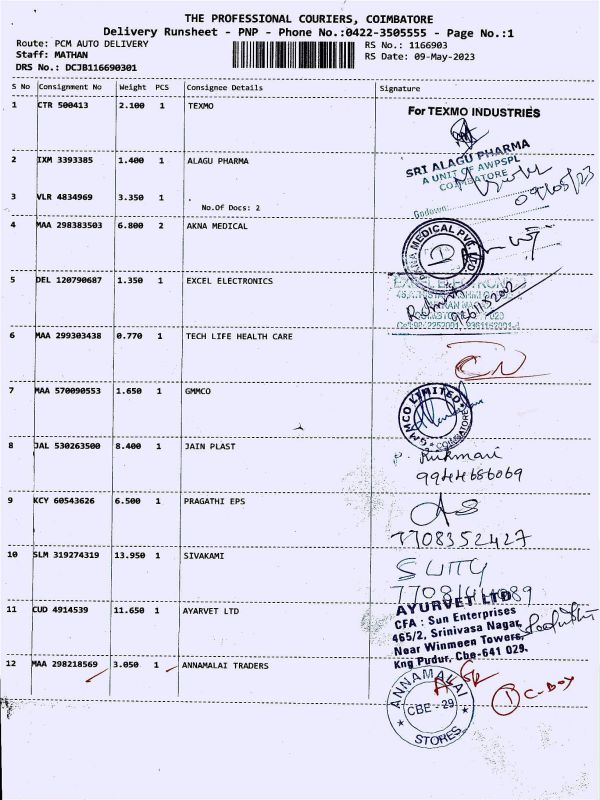 THE PROFESSIONAL COURIERS, COIMBATORE
Delivery Runsheet - PNP - Phone No.:0422-3505555 - Page No.:1
Route: PCM AUTO DELIVERY RS No.: 1166903
Staff: MATHAN RS Date: 09-May-2023
DRS No.: DCJB116690301
S No Consignment No Weight PCS Consignee Details Signature
1 CTR 500413 2.100 1 TEXMO
For TEXMO INDUSTRIES
2 IXM 3393385 1.400 1 ALAGU PHARMA
SRI ALAGU PHARMA
A UNIT OF AWPSPL
COIMBATORE
09/05/23
3 VLR 4834969 3.350 1
No.Of Docs: 2
Godown:
4 MAA 298383503 6.800 2 AKNA MEDICAL
AKNA MEDICAL PVT. LTD.
5 DEL 120790687 1.350 1 EXCEL ELECTRONICS
EXCEL ELECTRONICS
6 MAA 299303438 0.770 1 TECH LIFE HEALTH CARE
CN
7 MAA 570090553 1.650 1 GMMCO
GMMCO LIMITED
COIMBATORE
8 JAL 530263500 8.400 1 JAIN PLAST
Rukmani
9944686069
9 KCY 60543626 6.500 1 PRAGATHI EPS
7708352427
10 SLM 319274319 13.950 1 SIVAKAMI
11 CUD 4914539 11.650 1 AYARVET LTD
AYURVET LTD
CFA : Sun Enterprises
465/2, Srinivasa Nagar,
Near Winmeen Towers,
Kng Pudur, Cbe-641 029.
12 MAA 298218569 3.050 1 ANNAMALAI TRADERS
ANNAMALAI
CBE - 29
STORES
1 C-Boy